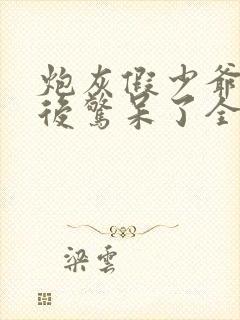 炮灰假少爷
後驚呆了全
梁雲